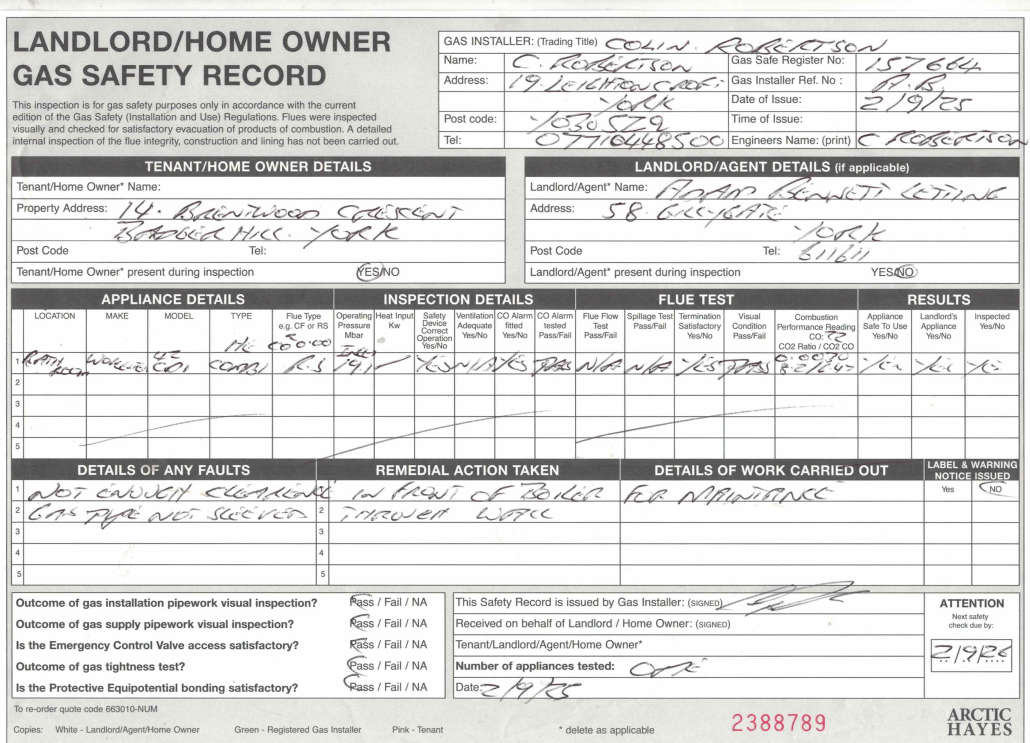 LANDLORD/HOME OWNER
GAS SAFETY RECORD
This inspection is for gas safety purposes only in accordance with the current
edition of the Gas Safety (Installation and Use) Regulations. Flues were inspected
visually and checked for satisfactory evacuation of products of combustion. A detailed
internal inspection of the flue integrity, construction and lining has not been carried out.
GAS INSTALLER: (Trading Title) COLIN. ROBERTSON
Name: C. ROBERTSON Gas Safe Register No: 157664
Address: 19. LEIGHTON CROFT Gas Installer Ref. No : A.B.
YORK Date of Issue: 2/9/25
Post code: YO30 5Z9 Time of Issue:
Tel: 07710448500 Engineers Name: (print) C ROBERTSON
TENANT/HOME OWNER DETAILS
Tenant/Home Owner* Name:
Property Address: 14. BRENTWOOD CRESCENT
BADGER HILL. YORK
Post Code Tel:
Tenant/Home Owner* present during inspection YES/NO
LANDLORD/AGENT DETAILS (if applicable)
Landlord/Agent* Name: ADAM BENNETT LETTING
Address: 58. GILLYGATE
YORK
Post Code Tel: 611611
Landlord/Agent* present during inspection YES/NO
APPLIANCE DETAILS INSPECTION DETAILS FLUE TEST RESULTS
LOCATION MAKE MODEL TYPE Flue Type e.g. CF or RS Operating Pressure Mbar Heat Input Kw Safety Device Correct Operation Yes/No Ventilation Adequate Yes/No CO Alarm fitted Yes/No CO Alarm tested Pass/Fail Flue Flow Test Pass/Fail Spillage Test Pass/Fail Termination Satisfactory Yes/No Visual Condition Pass/Fail Combustion Performance Reading CO: CO2 Ratio / CO2 CO Appliance Safe To Use Yes/No Landlord's Appliance Yes/No Inspected Yes/No
1 BATH ROOM COMBI R.S 19.1 YES N/A YES PASS N/A N/A YES PASS YES YES YES
2
3
4
5
DETAILS OF ANY FAULTS REMEDIAL ACTION TAKEN DETAILS OF WORK CARRIED OUT LABEL & WARNING NOTICE ISSUED
1 NOT ENOUGH CLEARENCE 1 IN FRONT OF BOILER FOR MAINTANCE Yes NO
2 GAS PIPE NOT SLEEVED 2 THROUGH WALL
3 3
4 4
5 5
Outcome of gas installation pipework visual inspection? Pass / Fail / NA
Outcome of gas supply pipework visual inspection? Pass / Fail / NA
Is the Emergency Control Valve access satisfactory? Pass / Fail / NA
Outcome of gas tightness test? Pass / Fail / NA
Is the Protective Equipotential bonding satisfactory? Pass / Fail / NA
This Safety Record is issued by Gas Installer: (SIGNED)
Received on behalf of Landlord / Home Owner: (SIGNED)
Tenant/Landlord/Agent/Home Owner*
Number of appliances tested: ONE
Date: 2/9/25
ATTENTION
Next safety
check due by:
2/9/26
To re-order quote code 663010-NUM
Copies: White - Landlord/Agent/Home Owner Green - Registered Gas Installer Pink - Tenant * delete as applicable 2388789
ARCTIC
HAYES